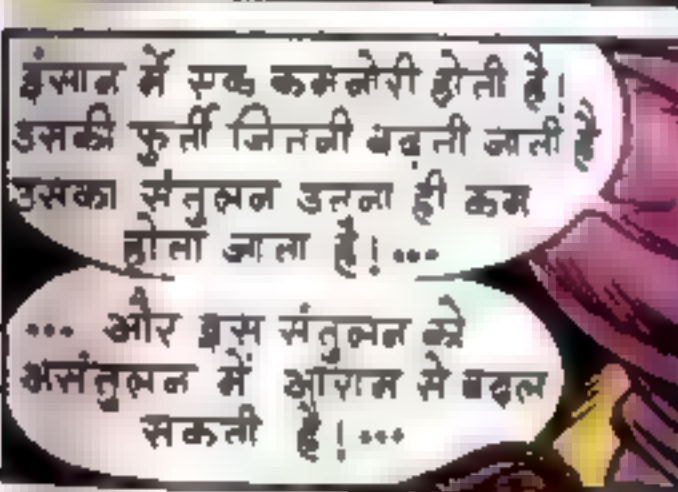 इंसान में एक कमजोरी होती है!
उसकी फुर्ती जितनी बढ़ती जाती है
उसका संतुलन उतना ही कम
होता जाता है!...
... और इस संतुलन को
असंतुलन में आराम से बदल
सकती है!...